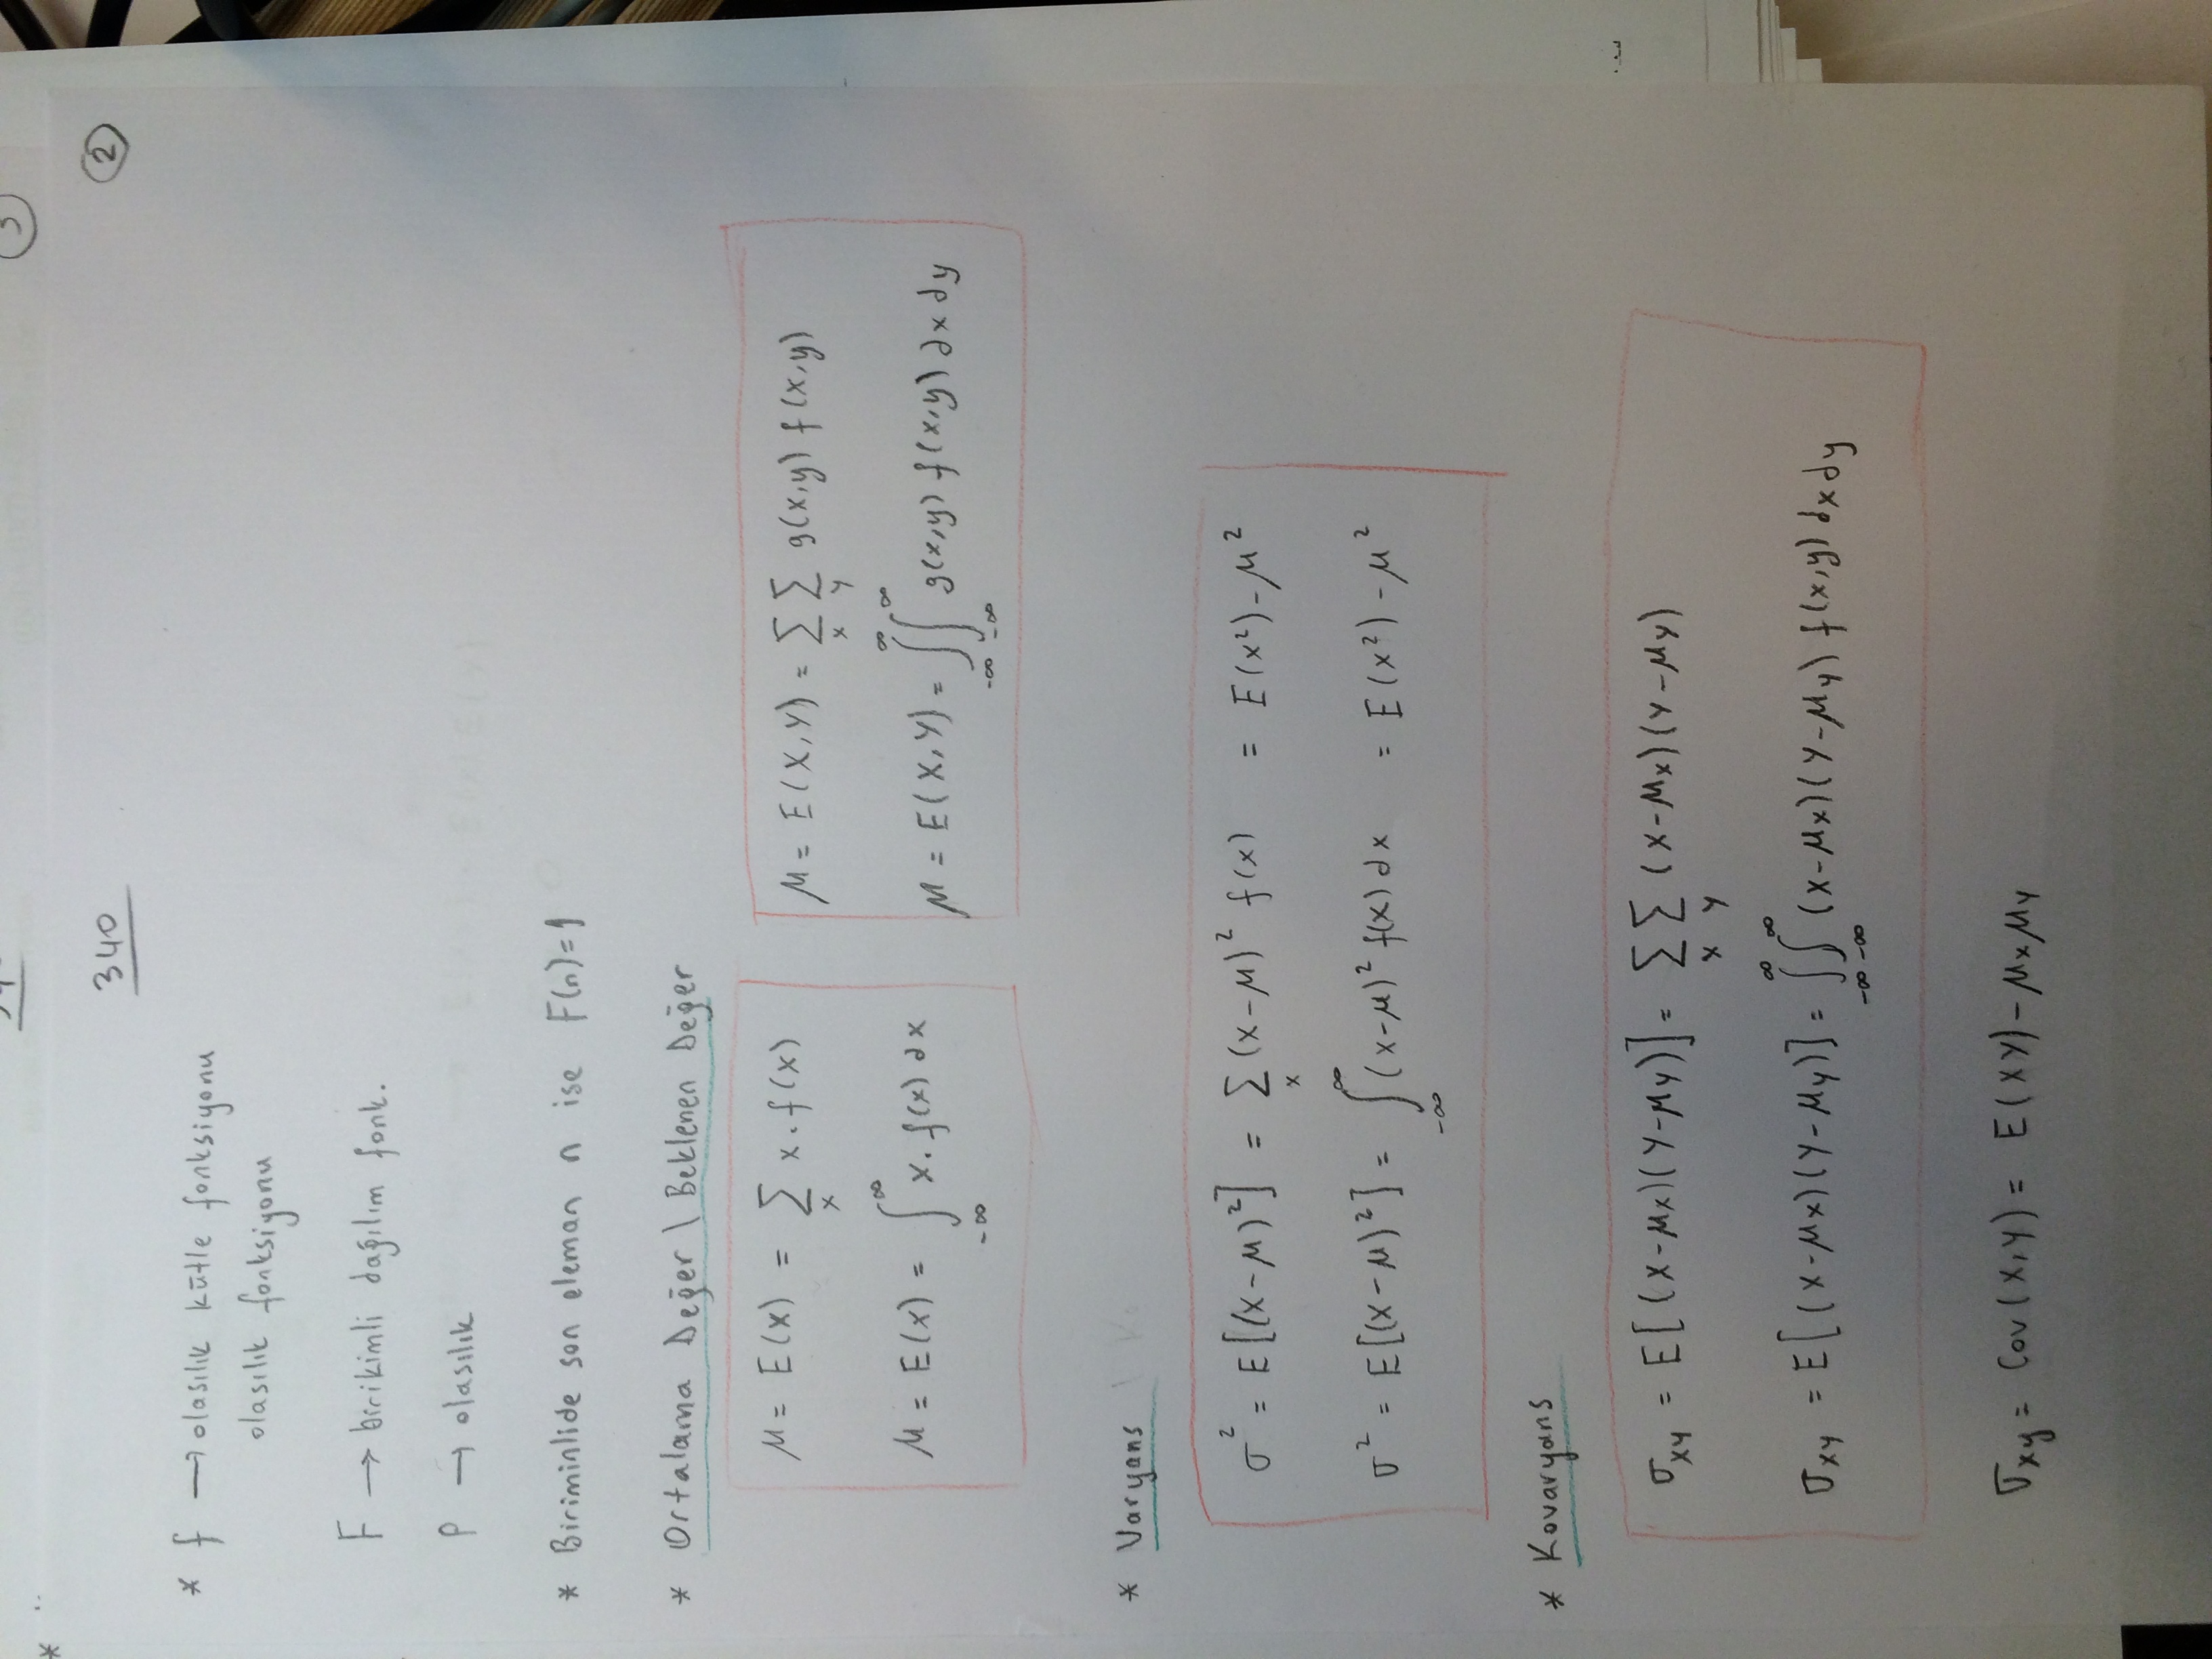 3
*
340
2
* f → olasılık kütle fonksiyonu
olasılık fonksiyonu
F → birikimli dağılım fonk.
P → olasılık
* Biriminlide son eleman n ise F(n)=1
* Ortalama Değer \ Beklenen Değer
μ = E(x) = ∑_x x. f(x)
μ = E(x) = ∫_{-∞}^{∞} x. f(x) dx
μ = E(X,Y) = ∑_x ∑_y g(x,y) f(x,y)
μ = E(X,Y) = ∫_{-∞}^{∞} ∫_{-∞}^{∞} g(x,y) f(x,y) dx dy
* Varyans
σ² = E[(X-μ)²] = ∑_x (x-μ)² f(x) = E(x²) - μ²
σ² = E[(X-μ)²] = ∫_{-∞}^{∞} (x-μ)² f(x) dx = E(x²) - μ²
* Kovaryans
σ_xy = E[(X-μ_x)(Y-μ_y)] = ∑_x ∑_y (x-μ_x)(y-μ_y)
σ_xy = E[(X-μ_x)(Y-μ_y)] = ∫_{-∞}^{∞} ∫_{-∞}^{∞} (x-μ_x)(y-μ_y) f(x,y) dx dy
σ_xy = Cov(X,Y) = E(XY) - μ_x μ_y